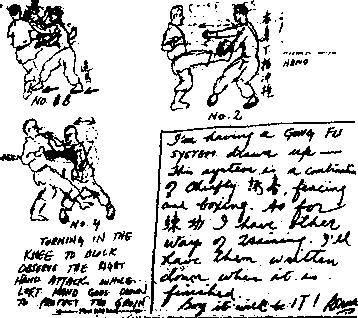 NO. 2
NO. 4
TURNING IN THE
KNEE TO BLOCK
OBSERVE THE RIGHT
HAND ATTACK WHILE
LEFT HAND GOES DOWN
TO PROTECT THE GROIN
I'm having a GUNG FU
SYSTEM drawn up —
this system is a combination
of chiefly 詠春, fencing
and boxing. As for
練功 I have other
ways of training. I'll
have them written
down when it is
finished.
Boy it will be IT!